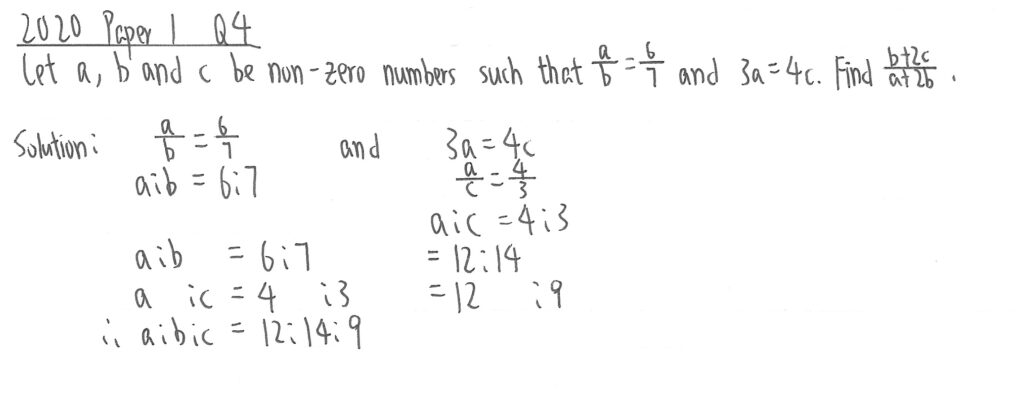 2020 Paper 1 Q4
Let a, b and c be non-zero numbers such that a/b = 6/7 and 3a = 4c. Find (b+2c)/(a+2b).
Solution: a/b = 6/7 and 3a = 4c
a:b = 6:7 a/c = 4/3
a:c = 4:3
a:b = 6:7 = 12:14
a :c = 4 :3 = 12 :9
∴ a:b:c = 12:14:9